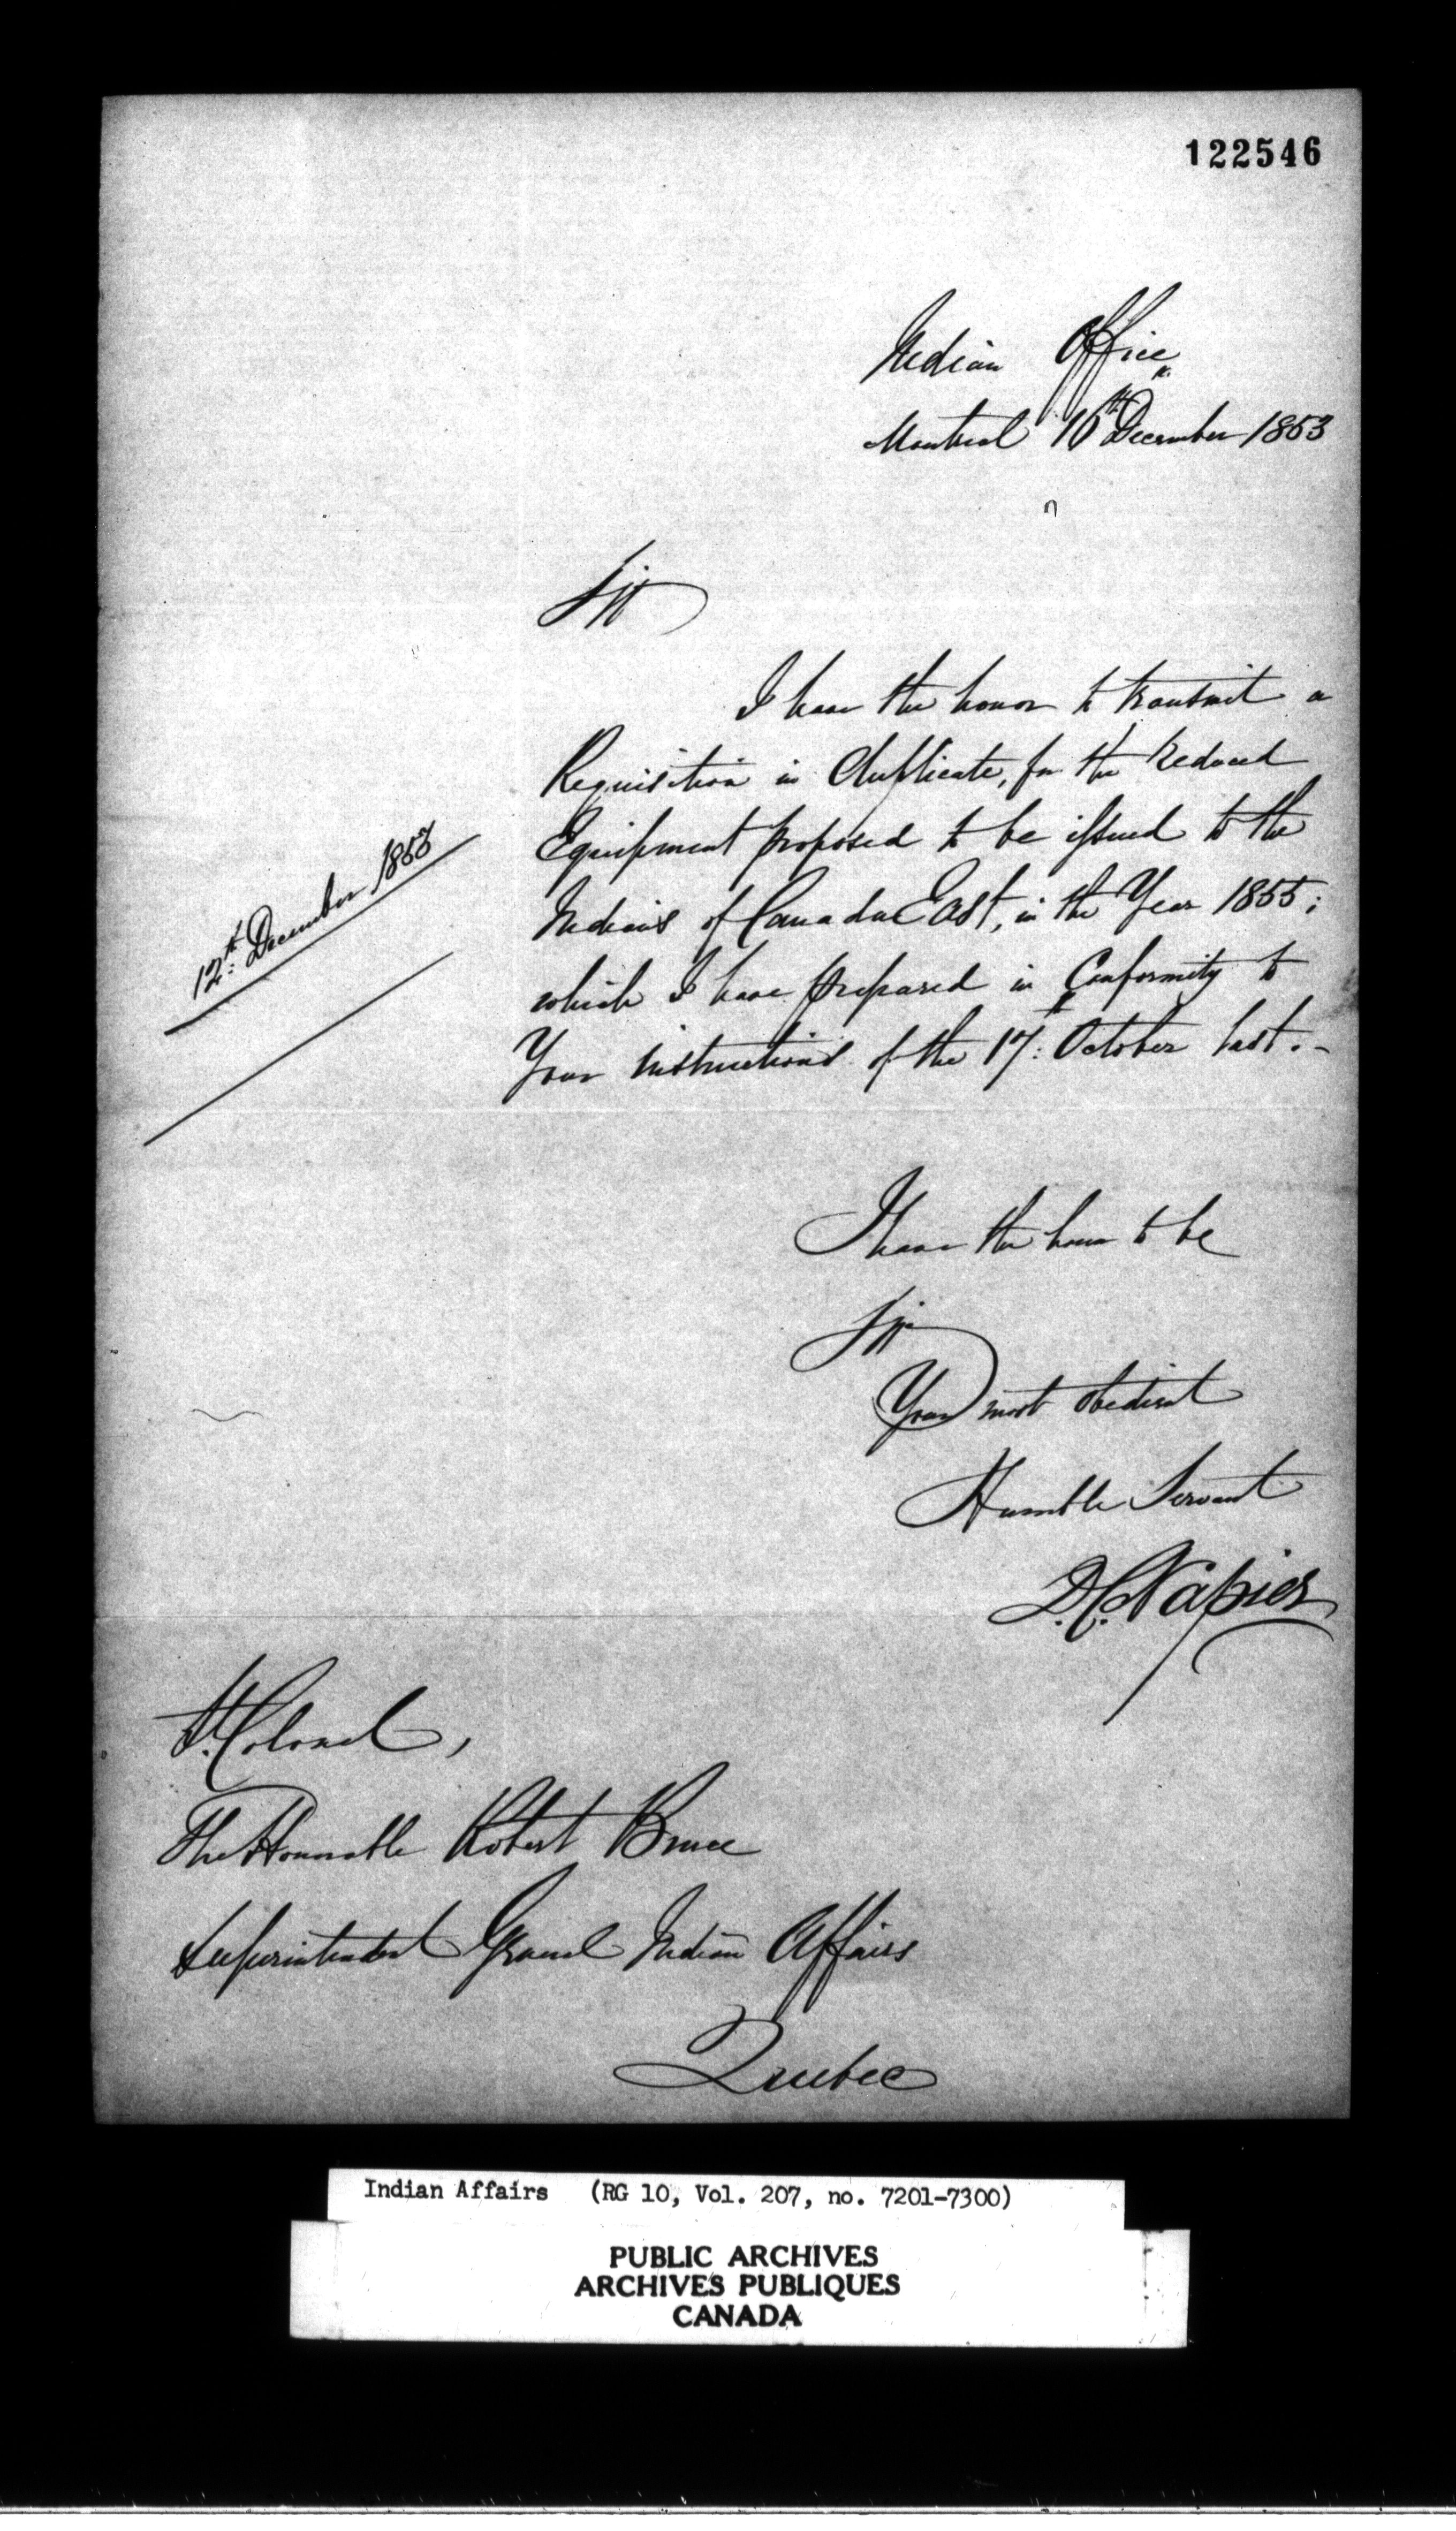 122546
Indian Office
Montreal 10th December 1853
Sir
I have the honor to transmit a
Requisition in Duplicate, for the reduced
Equipment proposed to be issued to the
Indians of Canada East, in the Year 1855;
which I have prepared in Conformity to
Your instructions of the 17th October last.-
12th December 1853
I have the honor to be
Sir
Your most obedient
Humble Servant
D.C. Napier
Lt. Colonel,
The Honorable Robert Bruce
Superintendent General Indian Affairs
Quebec
Indian Affairs (RG 10, Vol. 207, no. 7201-7300)
PUBLIC ARCHIVES
ARCHIVES PUBLIQUES
CANADA